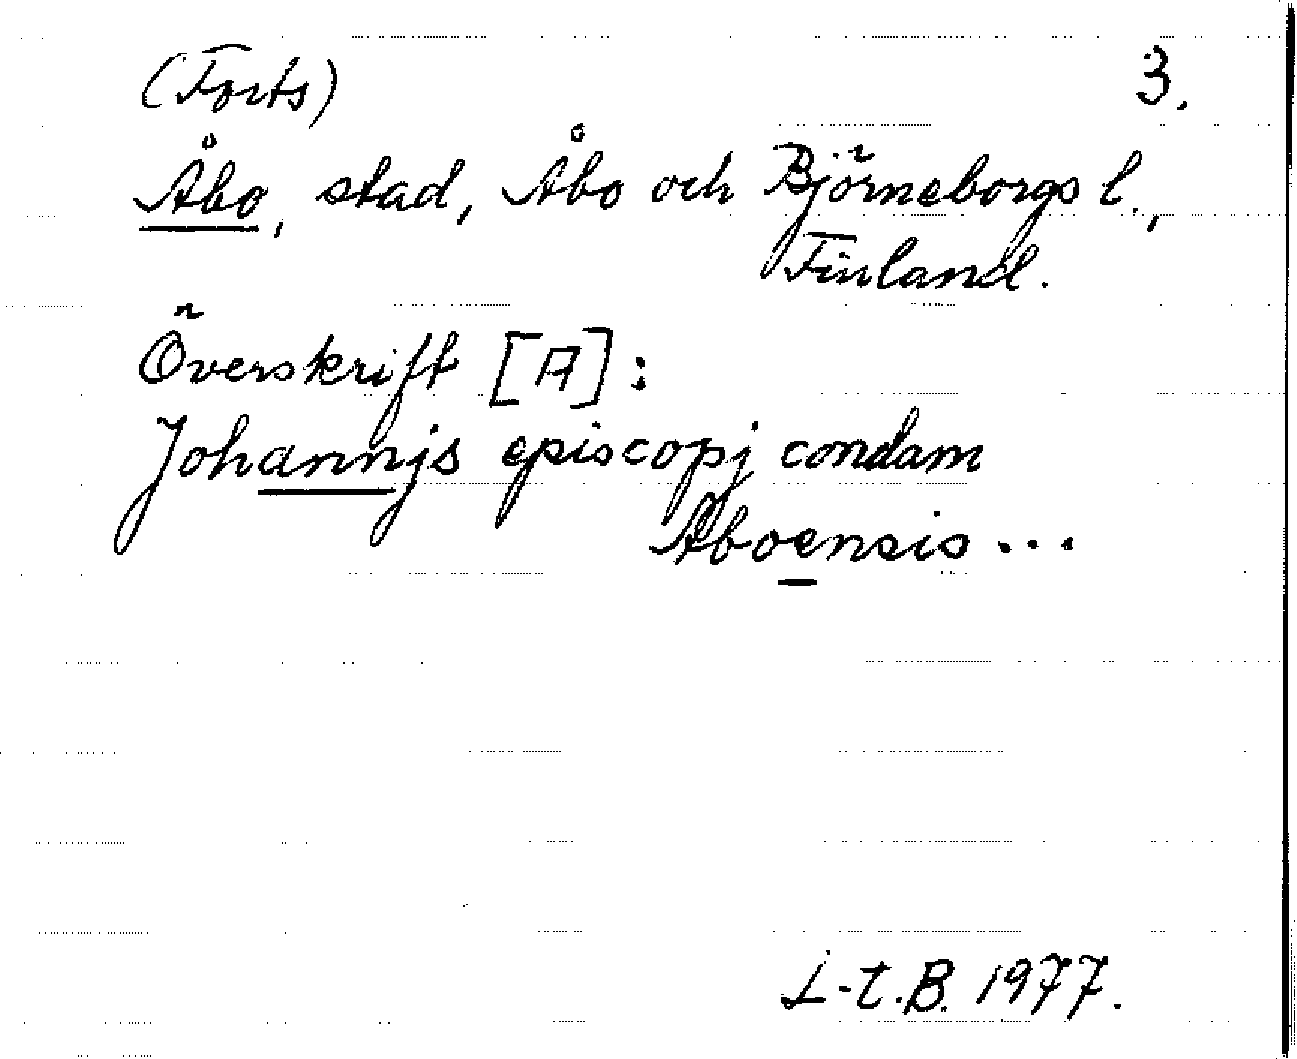 (Forts) 3.
Åbo, stad, Åbo och Björneborgs l.,
Finland.
Överskrift [A]:
Johannjs episcopj condam
Åboensis...
L-t.B. 1977.